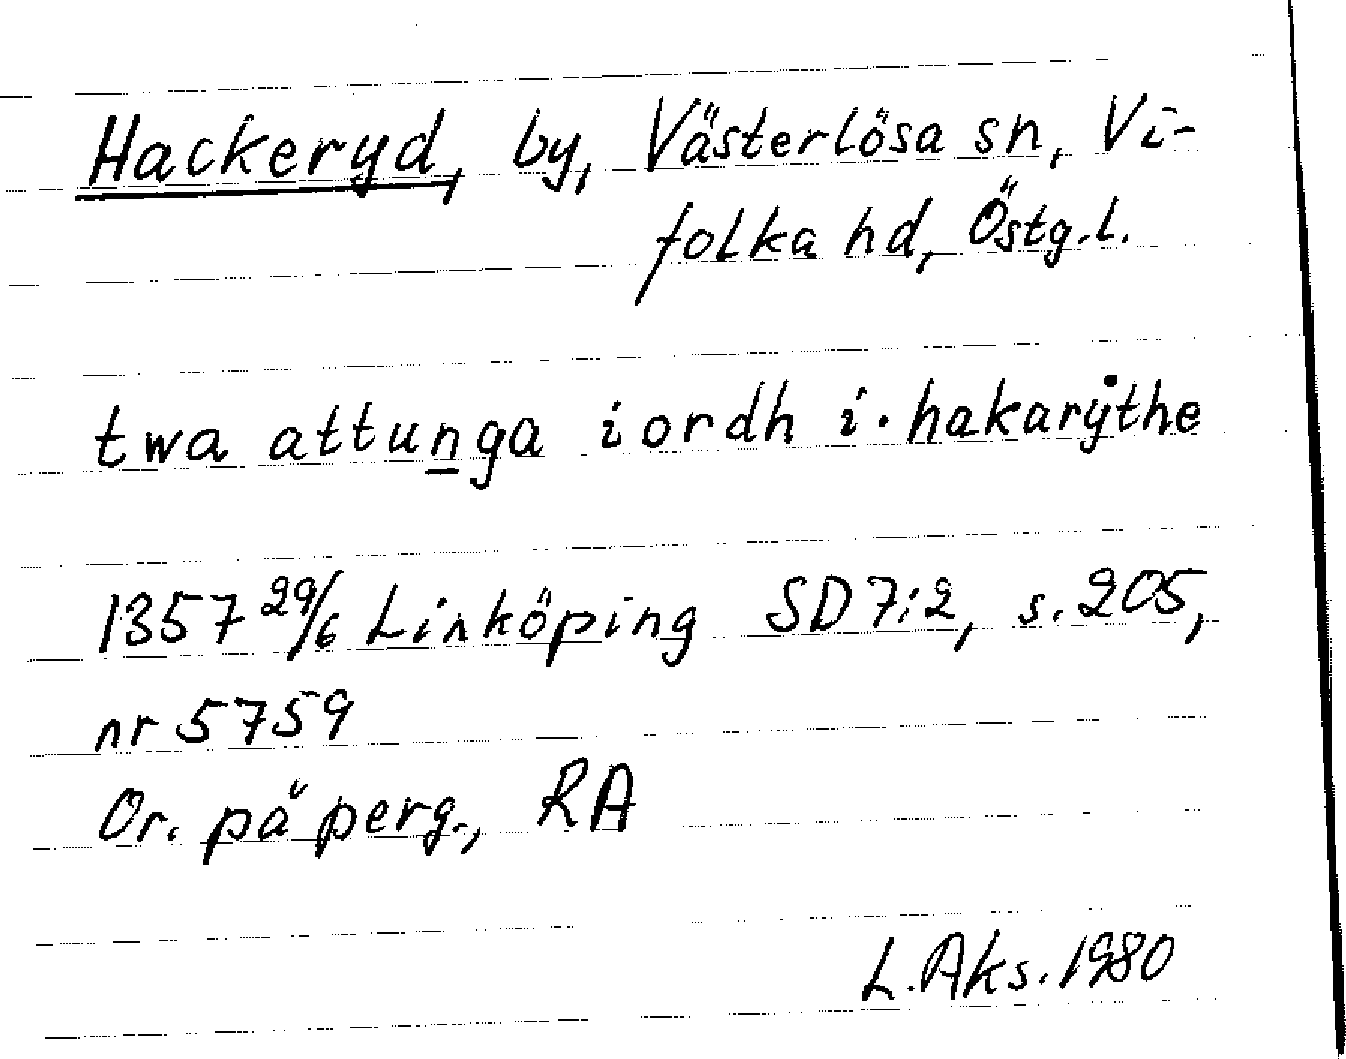 Hackeryd, by, Västerlösa sn, Vi-
folka hd, Östg.l.
twa attunga iordh i · hakarẏthe
1357 29/6 Linköping SD 7:2, s. 205,
nr 5759
Or. på perg., RA
L. Aks. 1980